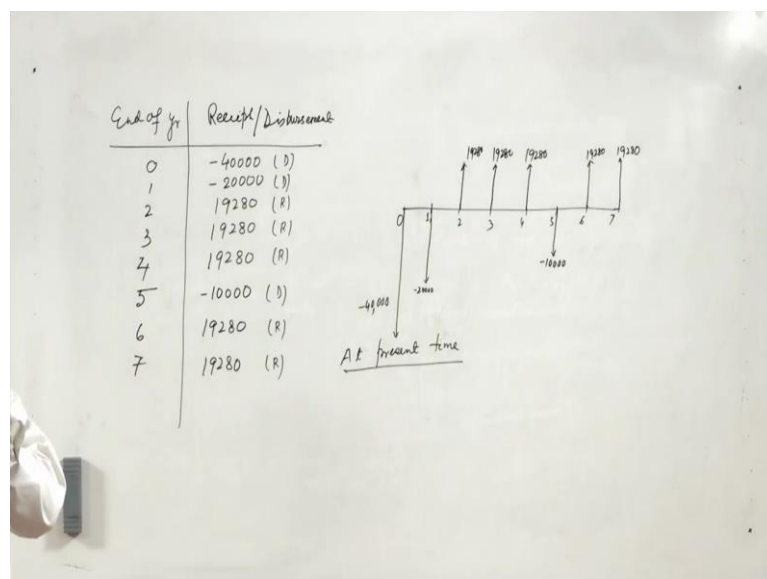 End of yr Receipt/Disbursement
0 -40000 (D)
1 -20000 (D)
2 19280 (R)
3 19280 (R)
4 19280 (R)
5 -10000 (D)
6 19280 (R)
7 19280 (R)
19280 19280 19280 19280 19280
0 1 2 3 4 5 6 7
-10000
-20000
-40,000
At present time